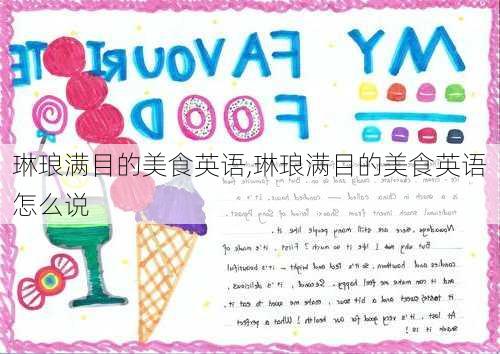 MY FAVOURITE
FOOD
琳琅满目的美食英语,琳琅满目的美食英语
怎么说
snack in China called — candied haws. It's a
traditional snack invent from Period of Song Dynast.
Nowadays, there are still many people like it.
But why do I like it so much? First, it's made of
candies and hawthorn, so it's red and bright and it's beautiful
and it can make me feel happy. Second, it's delicious.
It tastes sweet and a bit sour, make me want to eat it.
At last, it's very good for our health! What a perfect
snack it is!